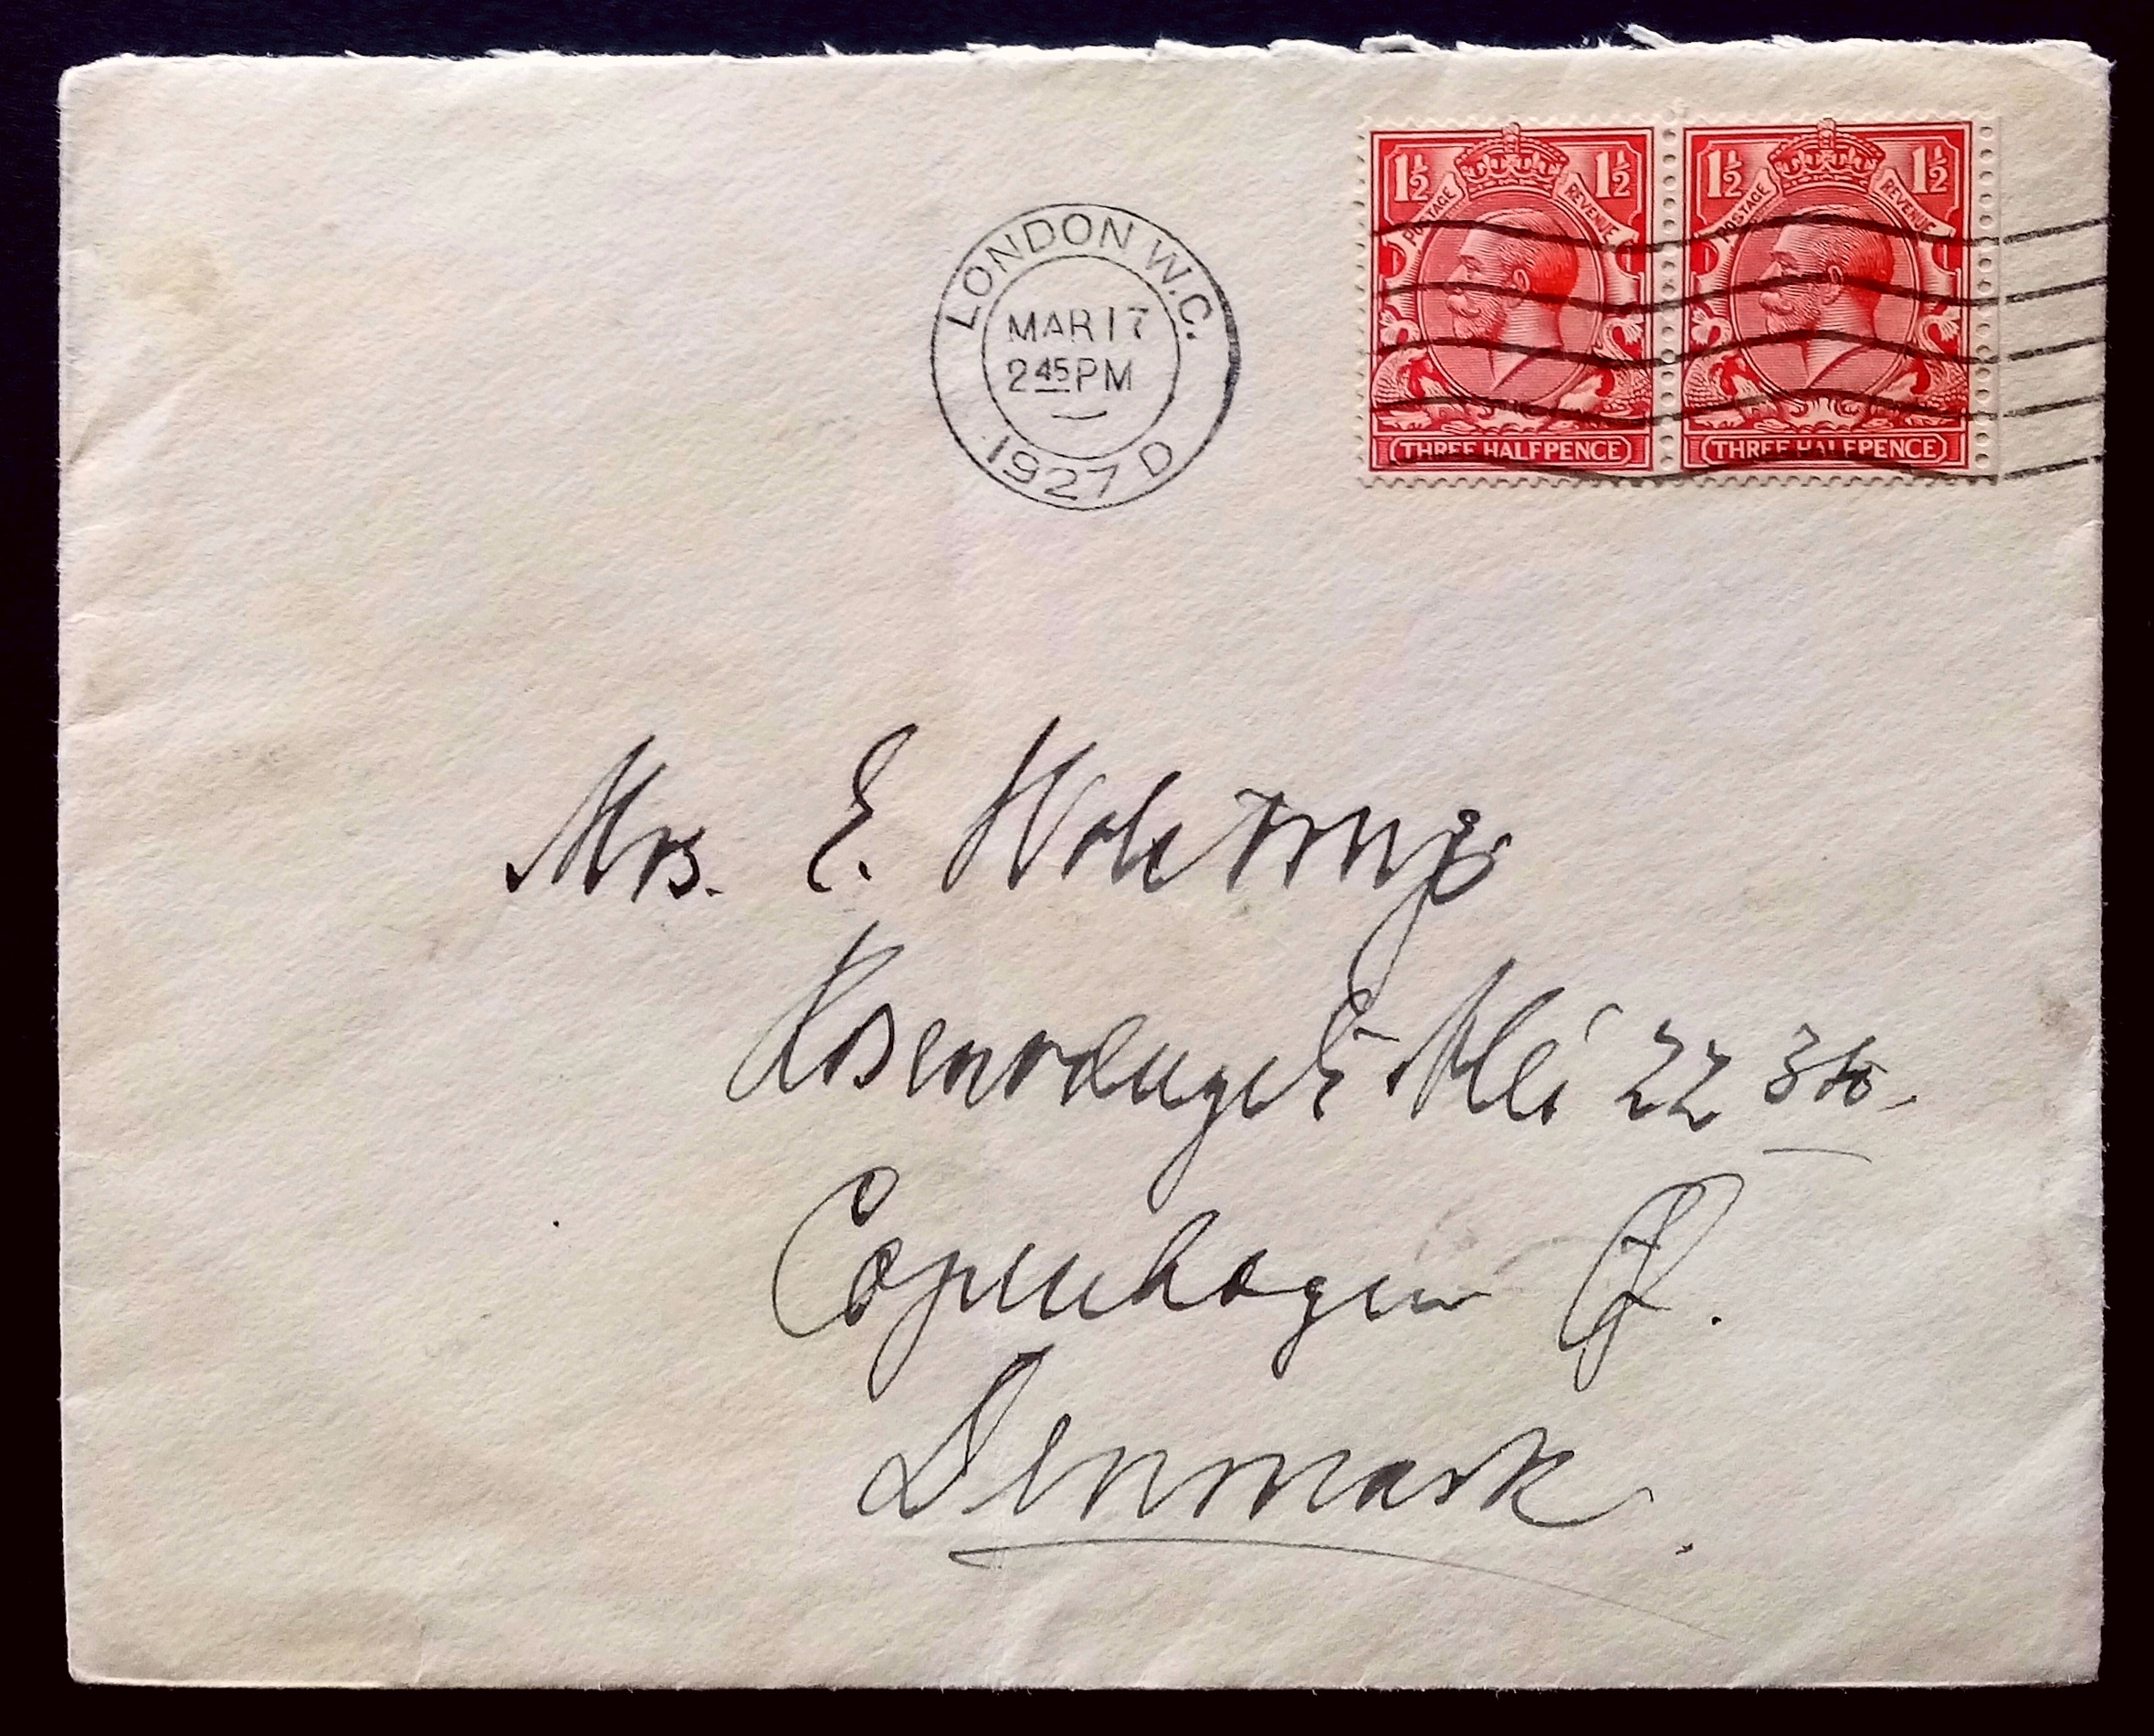 LONDON W.C.
MAR 17
2 45 PM
1927 D
1½ POSTAGE REVENUE 1½
THREE HALFPENCE
1½ POSTAGE REVENUE 1½
THREE HALFPENCE
Mrs. E.
22
Copenhagen Ø.
Denmark.